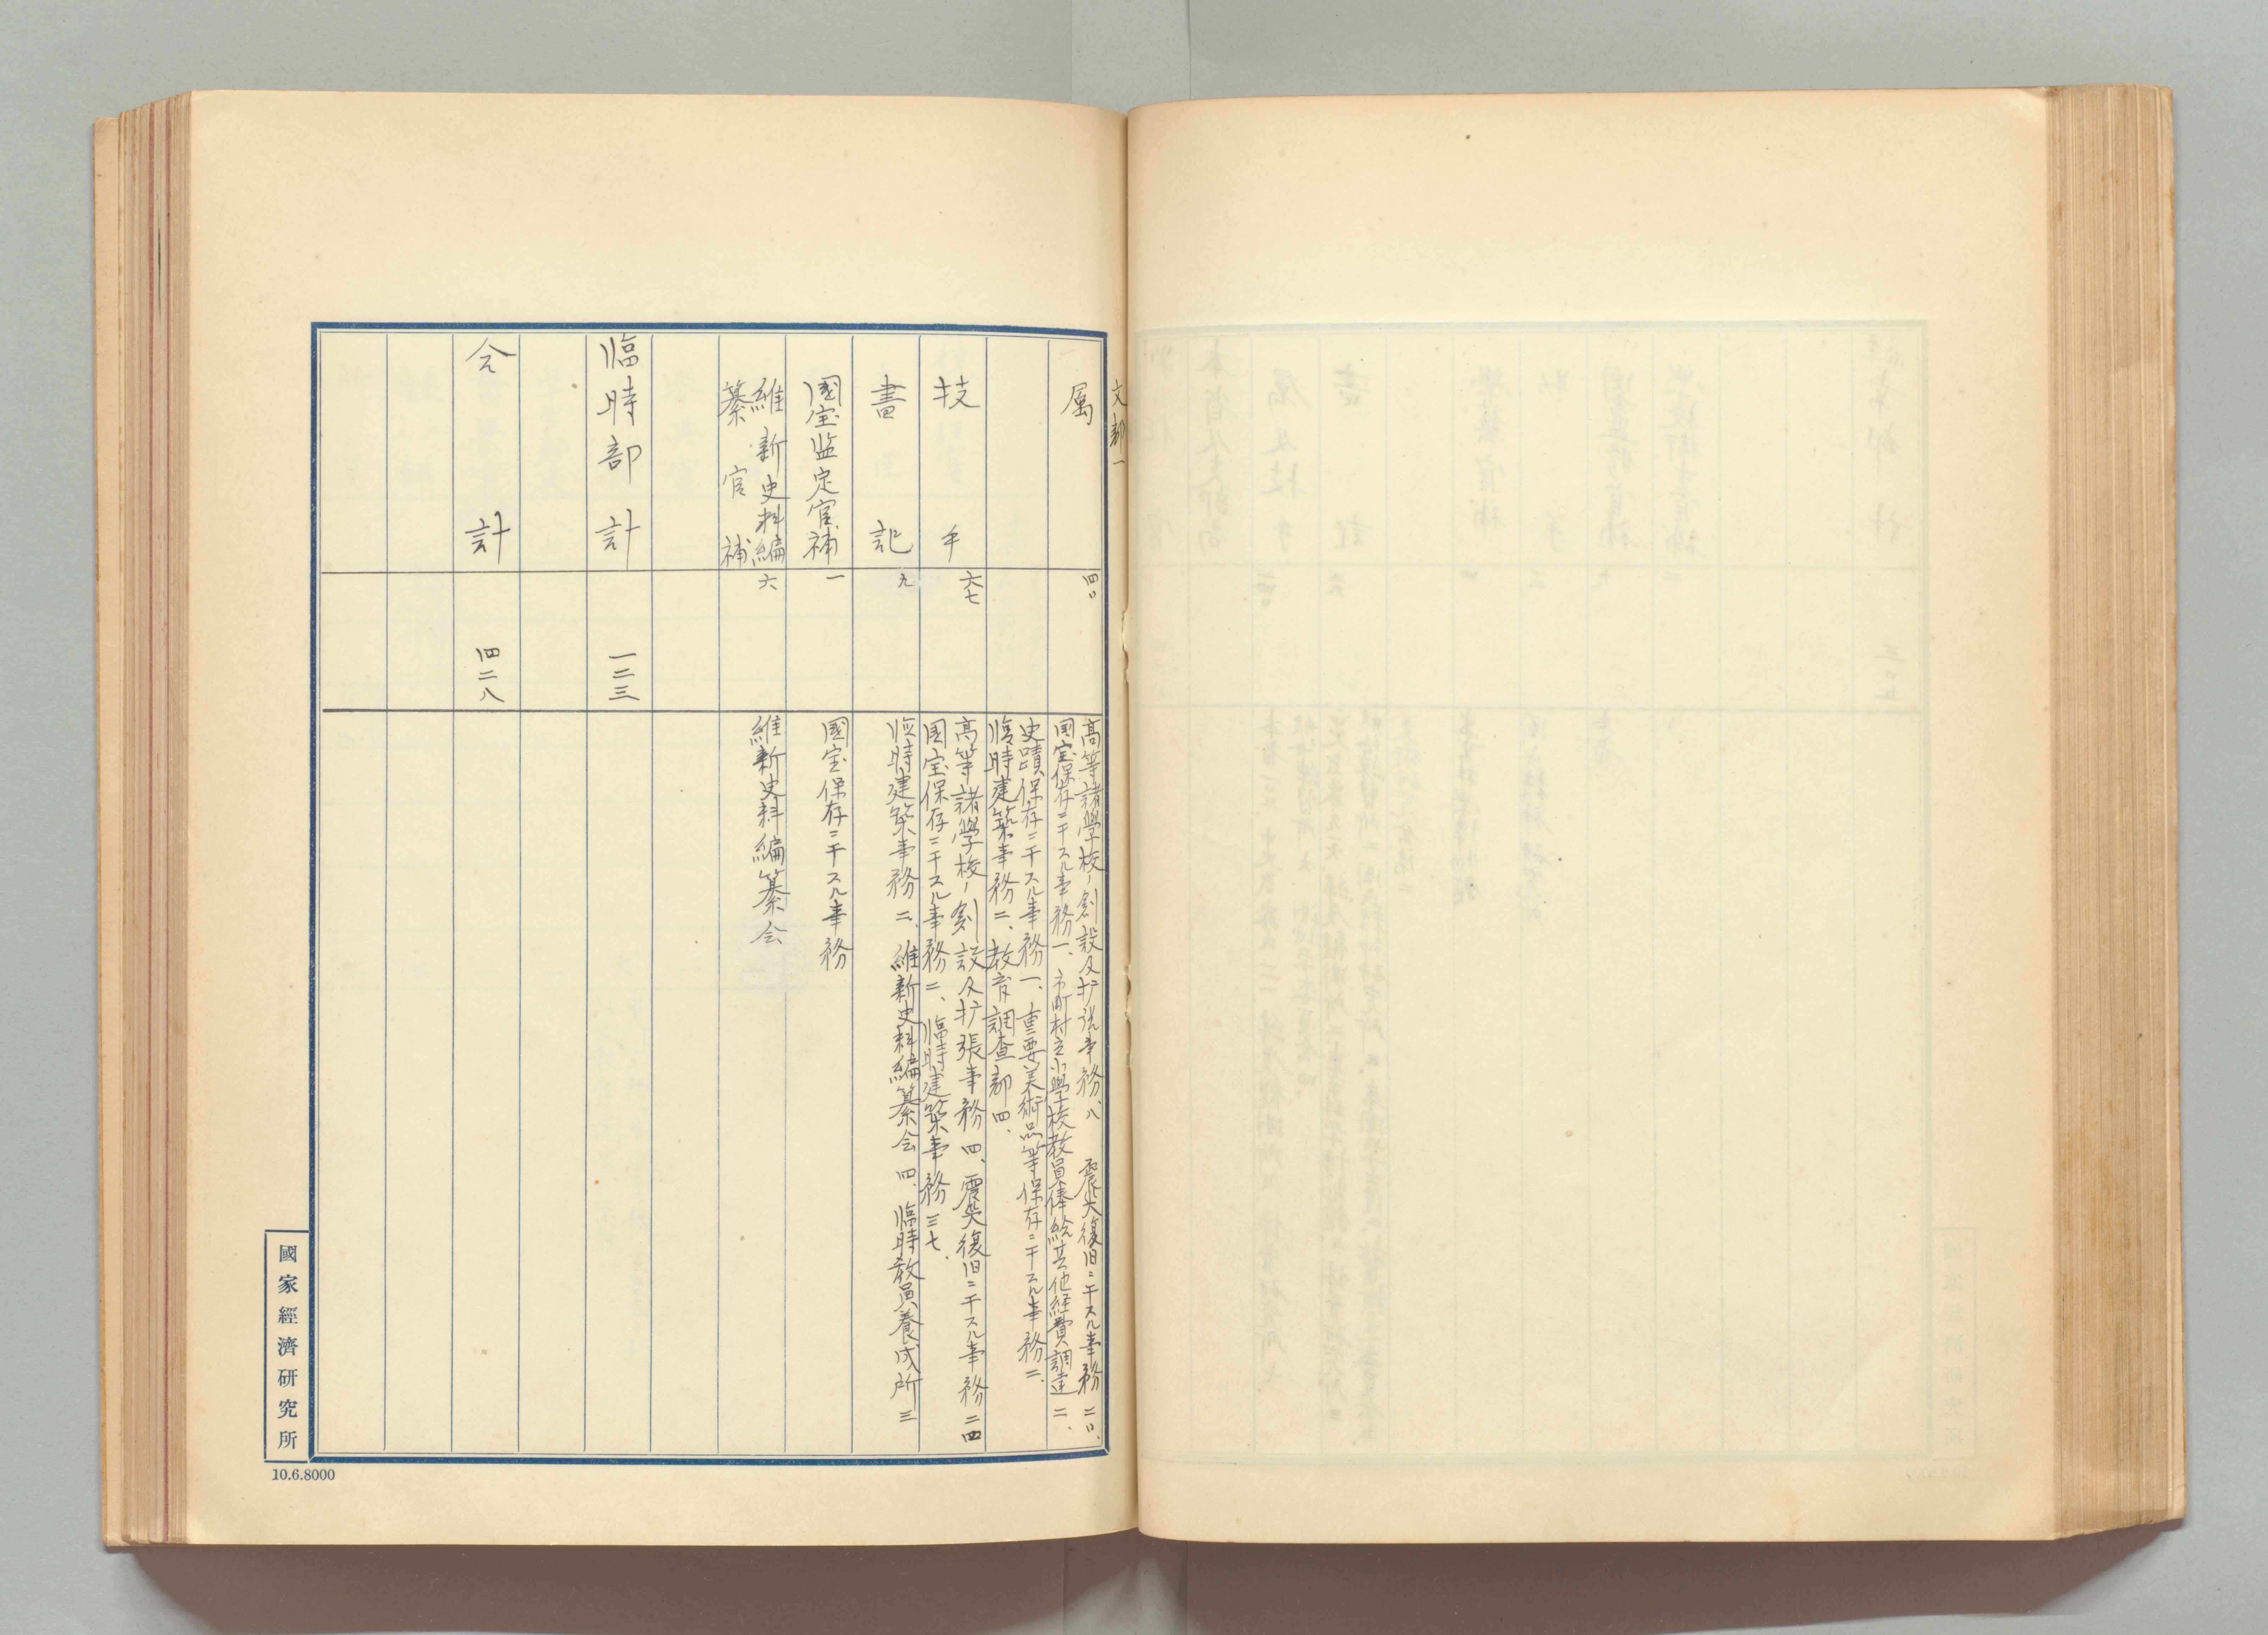 文部一
属
四〇
高等諸学校ノ創設及扩張事務、八 震災復旧ニ干スル事務二〇、
国宝保存ニ干スル事務一、市町村立小学校教員俸給其他経費調達二、
史蹟保存ニ干スル事務一、重要美術品等保存ニ干スル事務二、
臨時建築事務二、教育調査部四、
技手
六七
高等諸学校ノ創設及扩張事務四、震災復旧ニ干スル事務二四
国宝保存ニ干スル事務二、臨時建築事務三七、
書記
九
臨時建築事務二、維新史料編纂会四、臨時教員養成所三
國宝监定官補
一
國宝保存ニ干スル事務
維新史料編
纂官補
六
維新史料編纂会
臨時部計
一二三
仝計
四二八
國家經濟研究所
10.6.8000